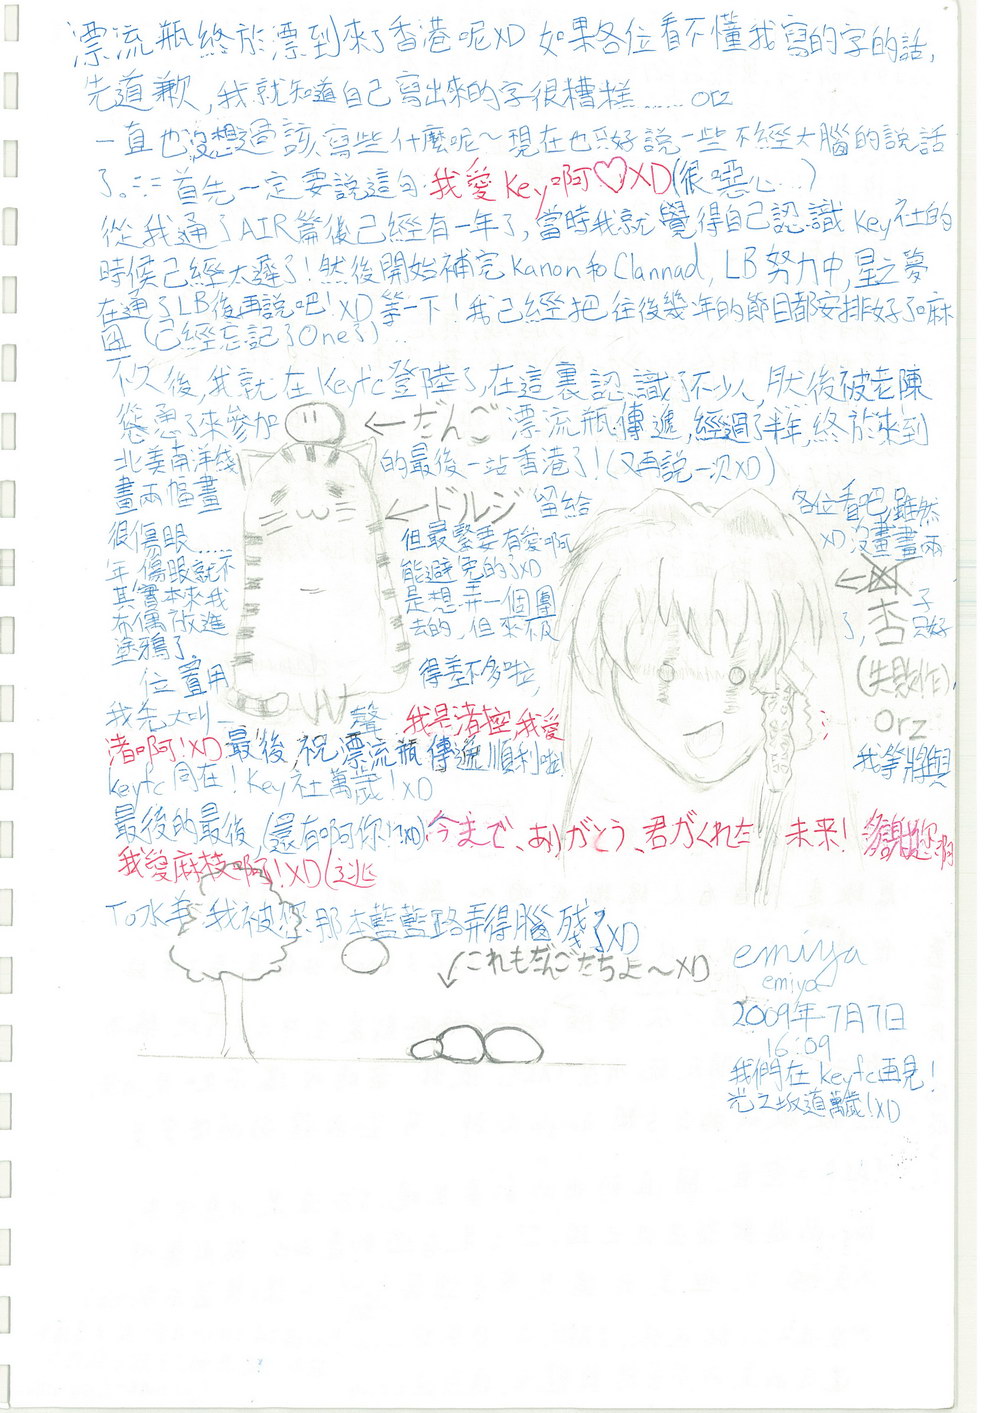 漂流瓶終於漂到來了香港呢XD 如果各位看不懂我寫的字的話,
先道歉,我就知道自己寫出來的字很糟糕......orz
一直也沒想過該寫些什麼呢~現在也只好說一些不經大腦的說話
了。首先一定要說這句:我愛Key啊♡XD(很噁心...)
從我通了AIR篇後已經有一年了,當時我就覺得自己認識Key社的
時候已經太遲了!然後開始補完Kanon和Clannad, LB努力中,星之夢
在通了LB後再說吧!XD 等一下!我已經把往後幾年的節目都安排好了嘛
(已經忘記了One了)...
不久後,我就在Keyfc登陸了,在這裏認識了不少人,然後被老陳
慫恿了來參加
←だんご
漂流瓶傳遞,經過了半年,終於來到
北美南洋綫
的最後一站香港了!(又再說一次XD)
畫兩幅畫
←ドルジ
留給
各位看吧,雖然
很傷眼......
但最緊要有愛啊
XD 沒畫畫兩
年傷眼就不
能避免的了XD
←
其實本來我
是想弄一個團
子
布偶放進
去的,但來不及
了,
杏
只好
塗鴉了。
(失敗作)
orz
位置用
得差不多啦,
我先大叫一
聲
我是渚控,我愛
渚啊!XD 最後,祝漂流瓶傳遞順利啦!
我等將與
keyfc同在!Key社萬歲!XD
最後的最後,(還有啊你!?XD)今まで、ありがとう、君がくれた 未来! 多謝您啊
我愛麻枝啊!XD(逃
To水羊 我被您那本藍藍路弄得腦殘了XD
これもだんごたちよ~XD
emiya
emiya
2009年7月7日
16:09
我們在keyfc再見!
光之坂道萬歲!XD